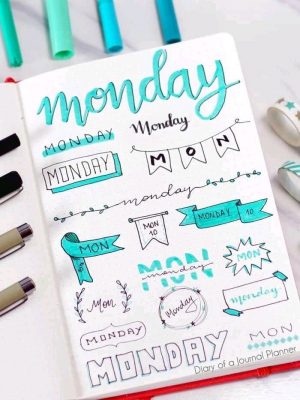 monday
MONDAY
Monday
MONDAY
MON
monday
MON
MON
10
MONDAY 10
MON
monday
MON
Mon
Monday
monday
MONDAY
MON
MONDAY
Diary of a Journal Planner